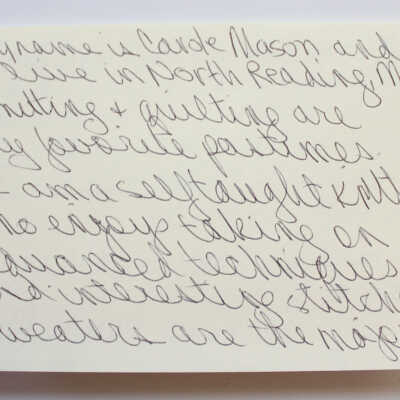 name is Carole Mason and
live in North Reading, M
nitting + quilting are
y favorite pastimes.
I am a self taught knitt
ho enjoys taking on
dvanced techniques
nd interesting stitch
weaters are the major